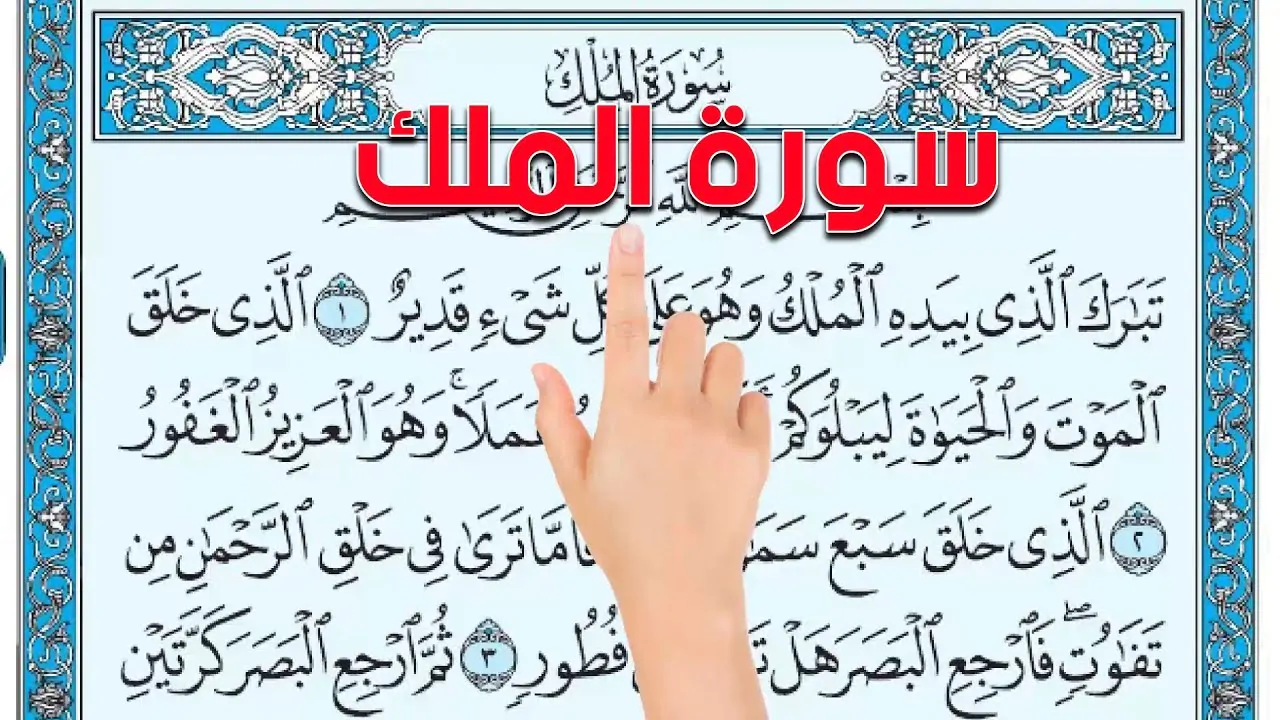 سُورَةُ الْمُلْكِ
سورة الملك
تَبَٰرَكَ ٱلَّذِى بِيَدِهِ ٱلْمُلْكُ وَهُوَ شَىْءٍ قَدِيرٌ ١ ٱلَّذِى خَلَقَ
ٱلْمَوْتَ وَٱلْحَيَوٰةَ لِيَبْلُوَكُمْ وَهُوَ ٱلْعَزِيزُ ٱلْغَفُورُ
٢ ٱلَّذِى خَلَقَ سَبْعَ مَّا تَرَىٰ فِى خَلْقِ ٱلرَّحْمَٰنِ مِن
تَفَٰوُتٍۖ فَٱرْجِعِ ٱلْبَصَرَ هَلْ فُطُورٍ ٣ ثُمَّ ٱرْجِعِ ٱلْبَصَرَ كَرَّتَيْنِ